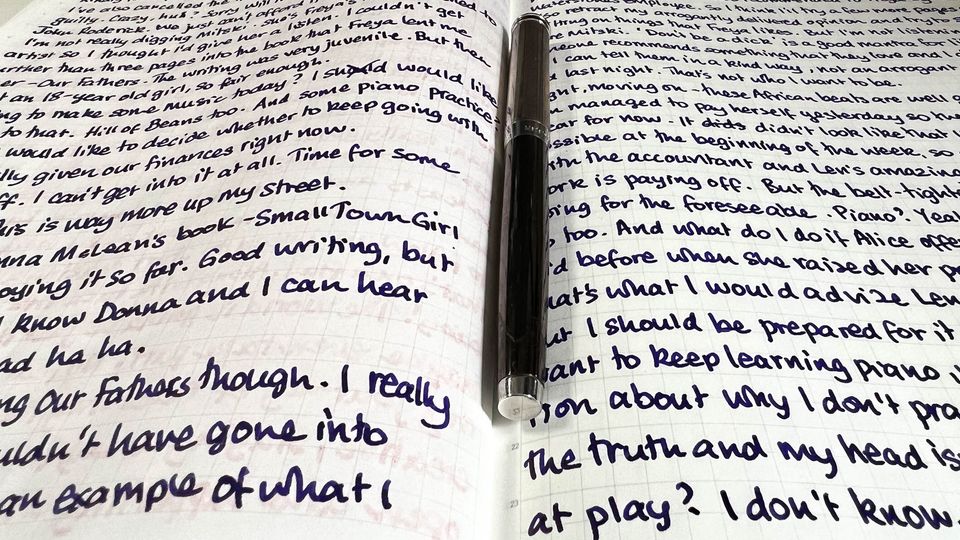 I've also cancelled the
guilty. Crazy, huh? Sorry
John Roderick. We just can't afford
I'm not really digging Mitski. She's Freya's
artist so I thought I'd give her a listen. I couldn't get
further than three pages into the book that Freya lent me
er - Our Fathers. The writing was very juvenile. But then
t an 18-year old girl, so fair enough.
ng to make some music today? I should would like
to that. Hill of Beans too. And some piano practice.
would like to decide whether to keep going with
lly given our finances right now.
ff. I can't get into it at all. Time for some
his is way more up my street.
nna McLean's book - Small Town Girl
oying it so far. Good writing, but
I know Donna and I can hear
ad ha ha.
ng Our Fathers though. I really
uldn't have gone into
an example of what I
Waterstones employee.
arrogantly delivered opinion
itting on things that Freya likes. But I'm not
re Mitski. 'Don't be a dick' is a good mantra for
eone recommends something that they love and
I can tell them in a kind way, not an arrogant
d last night. That's not who I want to be.
ght, moving on - these African beats are well
managed to pay herself yesterday so
ear for now. It dids didn't look like that
ssible at the beginning of the week, so
ith the accountant and Lev's amazing
ork is paying off. But the belt-tight
oing for the foreseeable. Piano? Yeah
too. And what do I do if Alice offe
'd before when she raised her p
hat's what I would advise Lev
ut I should be prepared for it
want to keep learning piano
ion about why I don't pra
the truth and my head is
at play? I don't know.